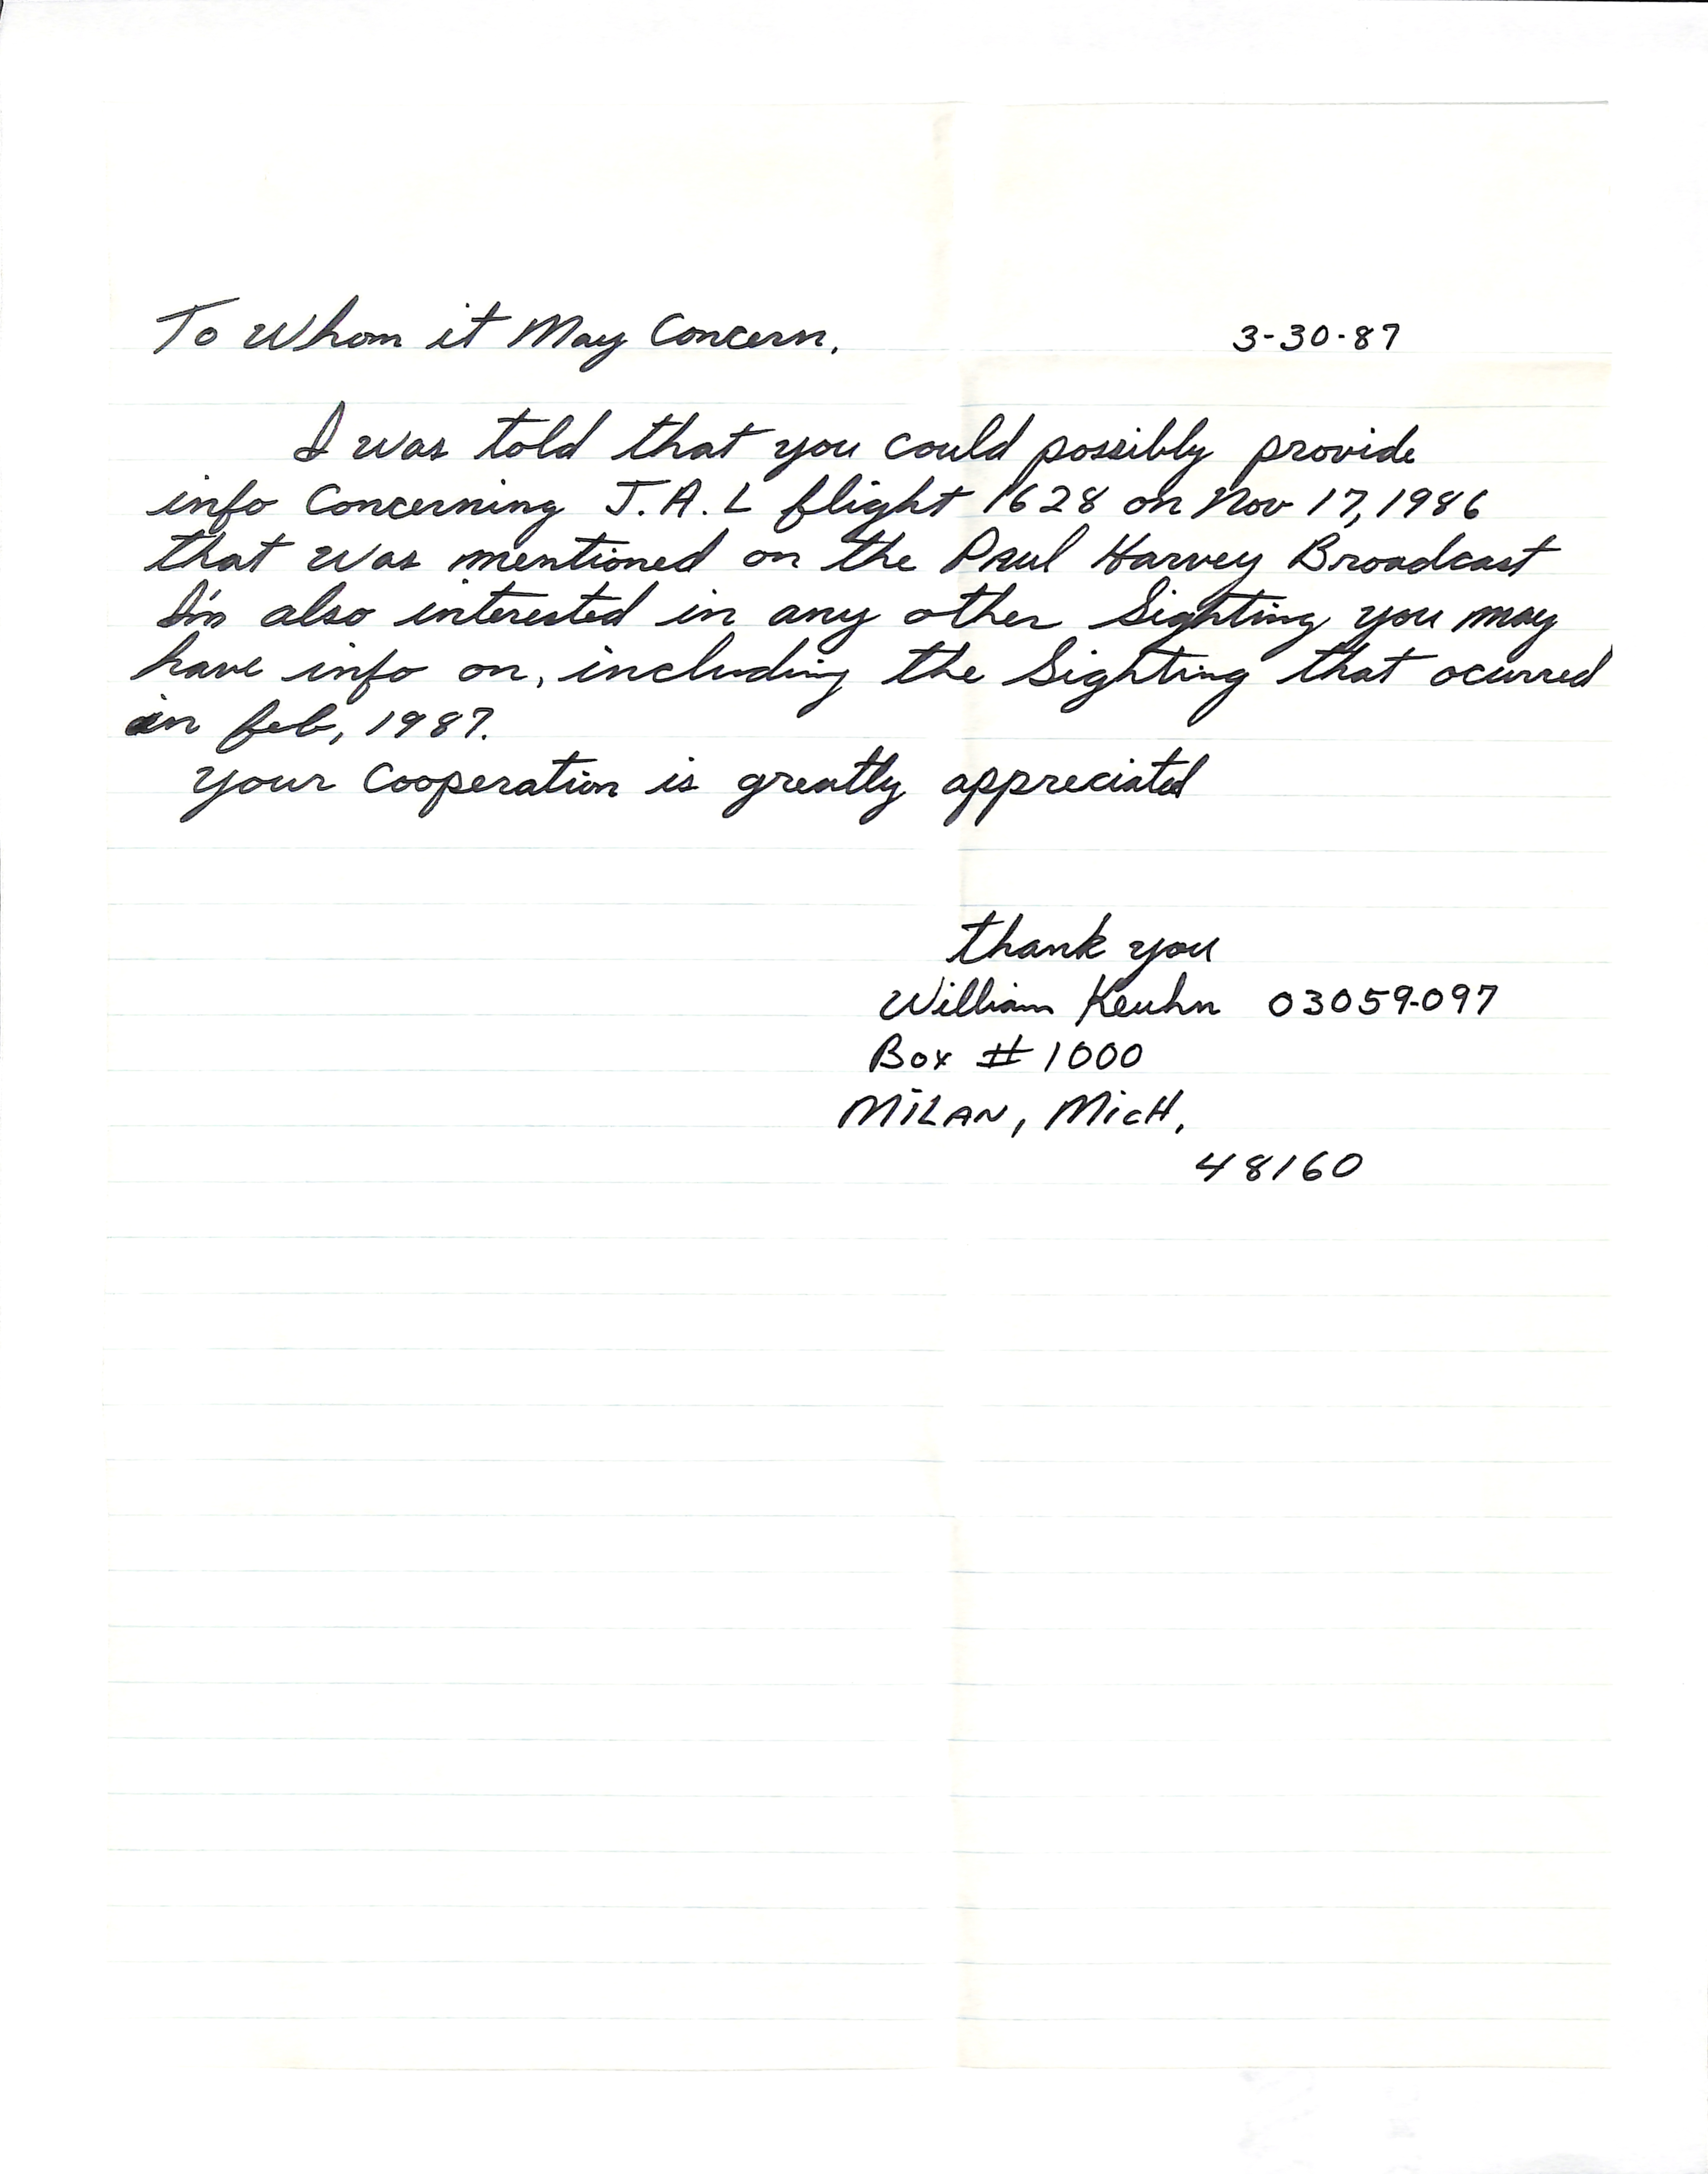 To Whom it May Concern, 3-30-87
I was told that you could possibly provide
info Concerning J.A.L flight 1628 on Nov 17, 1986
that was mentioned on the Paul Harvey Broadcast
I'm also interested in any other Sighting you may
have info on, including the Sighting that ocurred
in feb, 1987.
your Cooperation is greatly appreciated
thank you
William Keuhn 03059-097
Box # 1000
MILAN, MicH,
48160